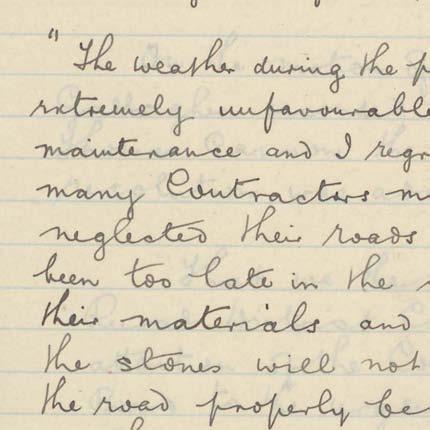 " The weather during the
extremely unfavourable
maintenance and I
many Contractors
neglected their roads
been too late in the
their materials and
the stones will not
the road properly be